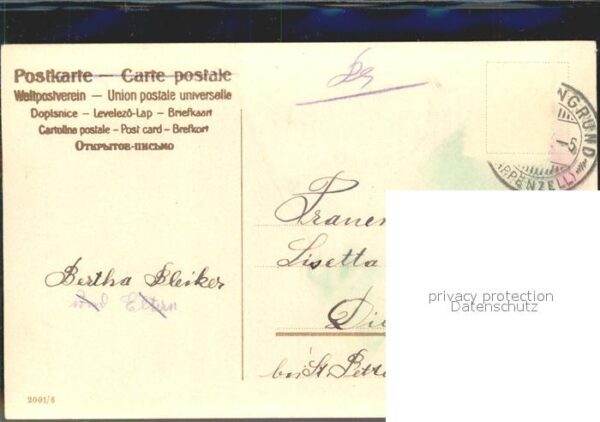 Postkarte — Carte postale
Weltpostverein — Union postale universelle
Dopisnice — Levelező-Lap — Briefkaart
Cartolina postale — Post card — Brefkort
Открытов-письмо
NGRUND
5
(APPENZELL)
Lisetta
Bertha Bleiker
und Eltern
bei St.
privacy protection
Datenschutz
2001/6